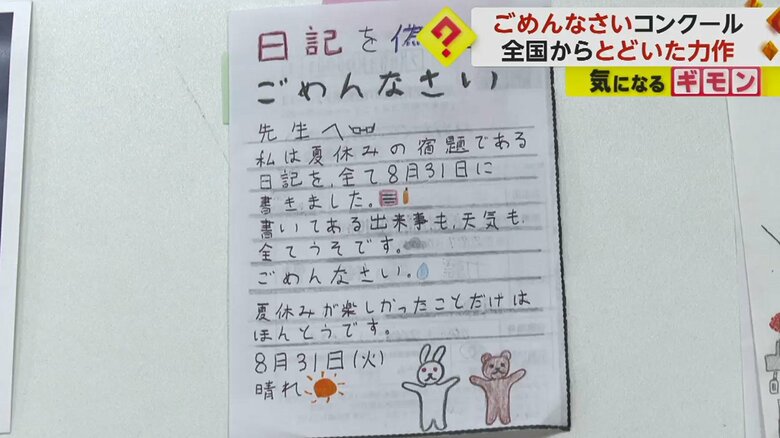 ごめんなさいコンクール
全国からとどいた力作
気になるギモン
?
日記を
ごめんなさい
先生へ
私は夏休みの宿題である
日記を、全て8月31日に
書きました。
書いてある出来事も、天気も、
全てうそです。
ごめんなさい。
夏休みが楽しかったことだけは
ほんとうです。
8月31日(火)
晴れ